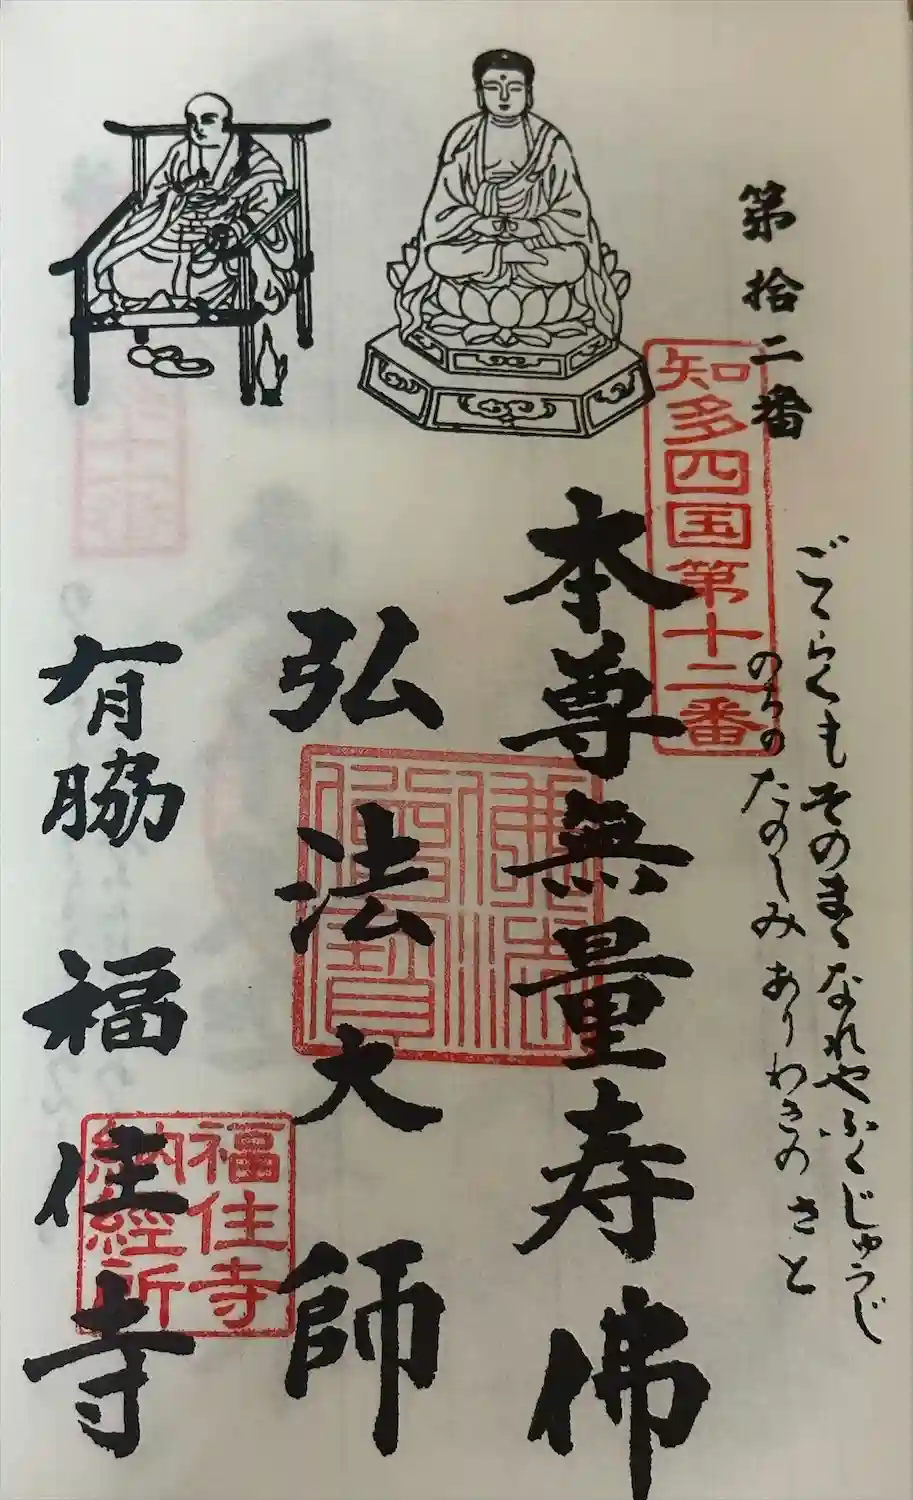 第拾二番
ごくらくもそのまゝなれやふくじゅうじ
のちのたのしみありわきのさと
知多四国第十二番
本尊無量寿佛
弘法大師
佛法僧寳
有脇 福住寺
福住寺
納経所